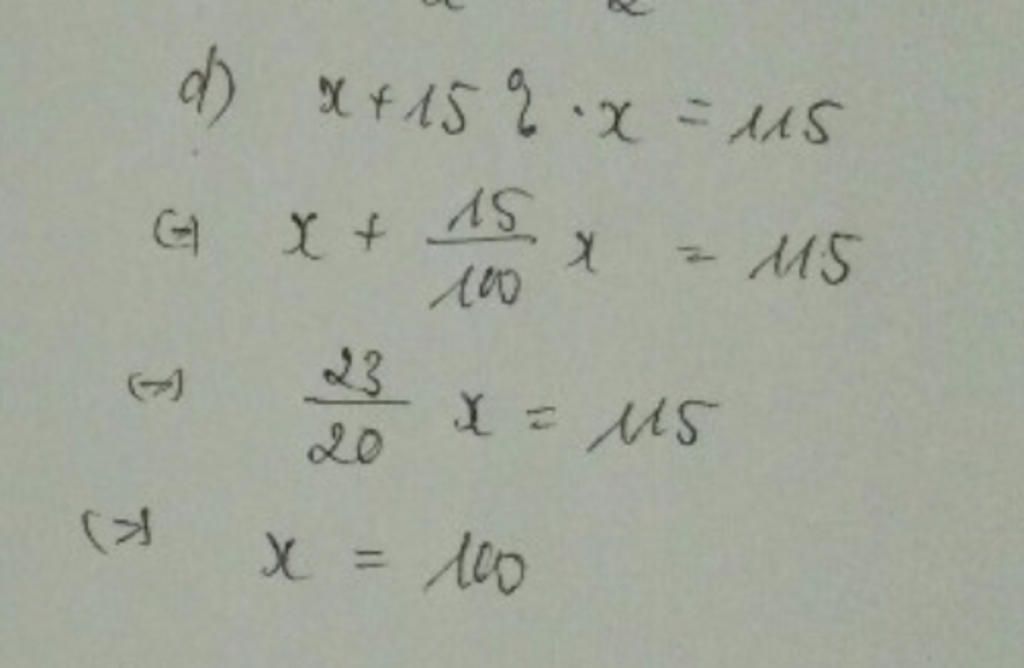 d) x + 15% · x = 115
(=) x + 15/100 x = 115
(=) 23/20 x = 115
(=) x = 100